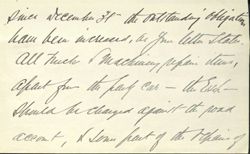 Since December 31st the outstanding obligations
have been increased, as your letter states.
All trucks & machinery repair items,
apart from the park car — the
should be charged against the road
account, & some part of the repairs of